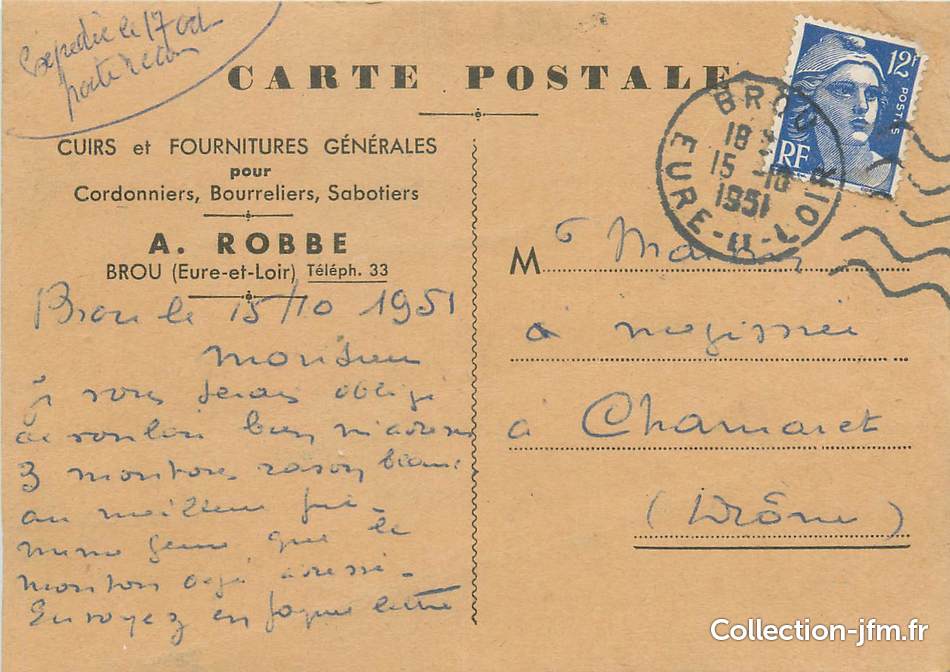 Expedié le 17 oct
CARTE POSTALE
CUIRS et FOURNITURES GÉNÉRALES
pour
Cordonniers, Bourreliers, Sabotiers
A. ROBBE
BROU (Eure-et-Loir) Téléph. 33
Brou le 15/10 1951
Monsieur
je vous serais obligé
de vouloir bien m'adresser
3 moutons rason blanc
au meilleur prix
meme genre que le
mouton deja adressé.
Envoyez en paquet lettre
12F
POSTES
RF
BROU
18
15 -10
1951
EURE-ET-LOIR
M
a megissier
a Chamaret
(Drôme)
Collection-jfm.fr